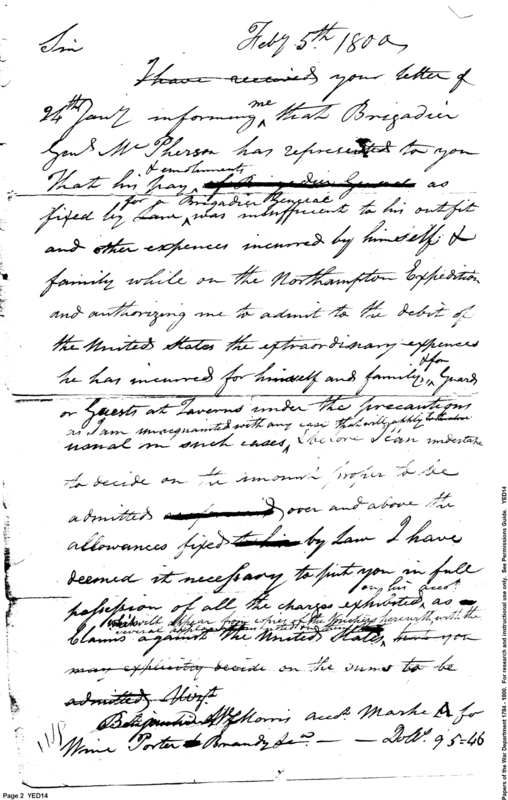 Sir Feby 5th 1800
I have received your letter of
24th Jany informing me that Brigadier
Genl Mc Pherson has represented to you
That his pay & emoluments of Brigadier General as
fixed by Law for a Brigadier General was insufficient to his outfit
and other expences incurred by himself &
family while on the Northampton Expedition
and authorizing me to admit to the debit of
the United States the extraordinary expences
he has incurred for himself and family & for Guards
or Guests at Taverns under the precautions
usual in such cases, as I am unacquainted with any case that will apply to the above
before I can undertake
to decide on the amount proper to be
admitted over and above the
allowances fixed by Law I have
deemed it necessary to put you in full
possession of all the charges exhibited on his accot. as
Claims against the United States, which will appear from copies of the Vouchers herewith, with the
several
that you
may explicitly decide on the sums to be
admitted
Morris accot. Marked A for
Wine Porter Brandy &ca — — Dolls. 95-46
Page 2 YED14
Papers of the War Department 1784 - 1800. For research and instructional use only. See Permissions Guide. YED14